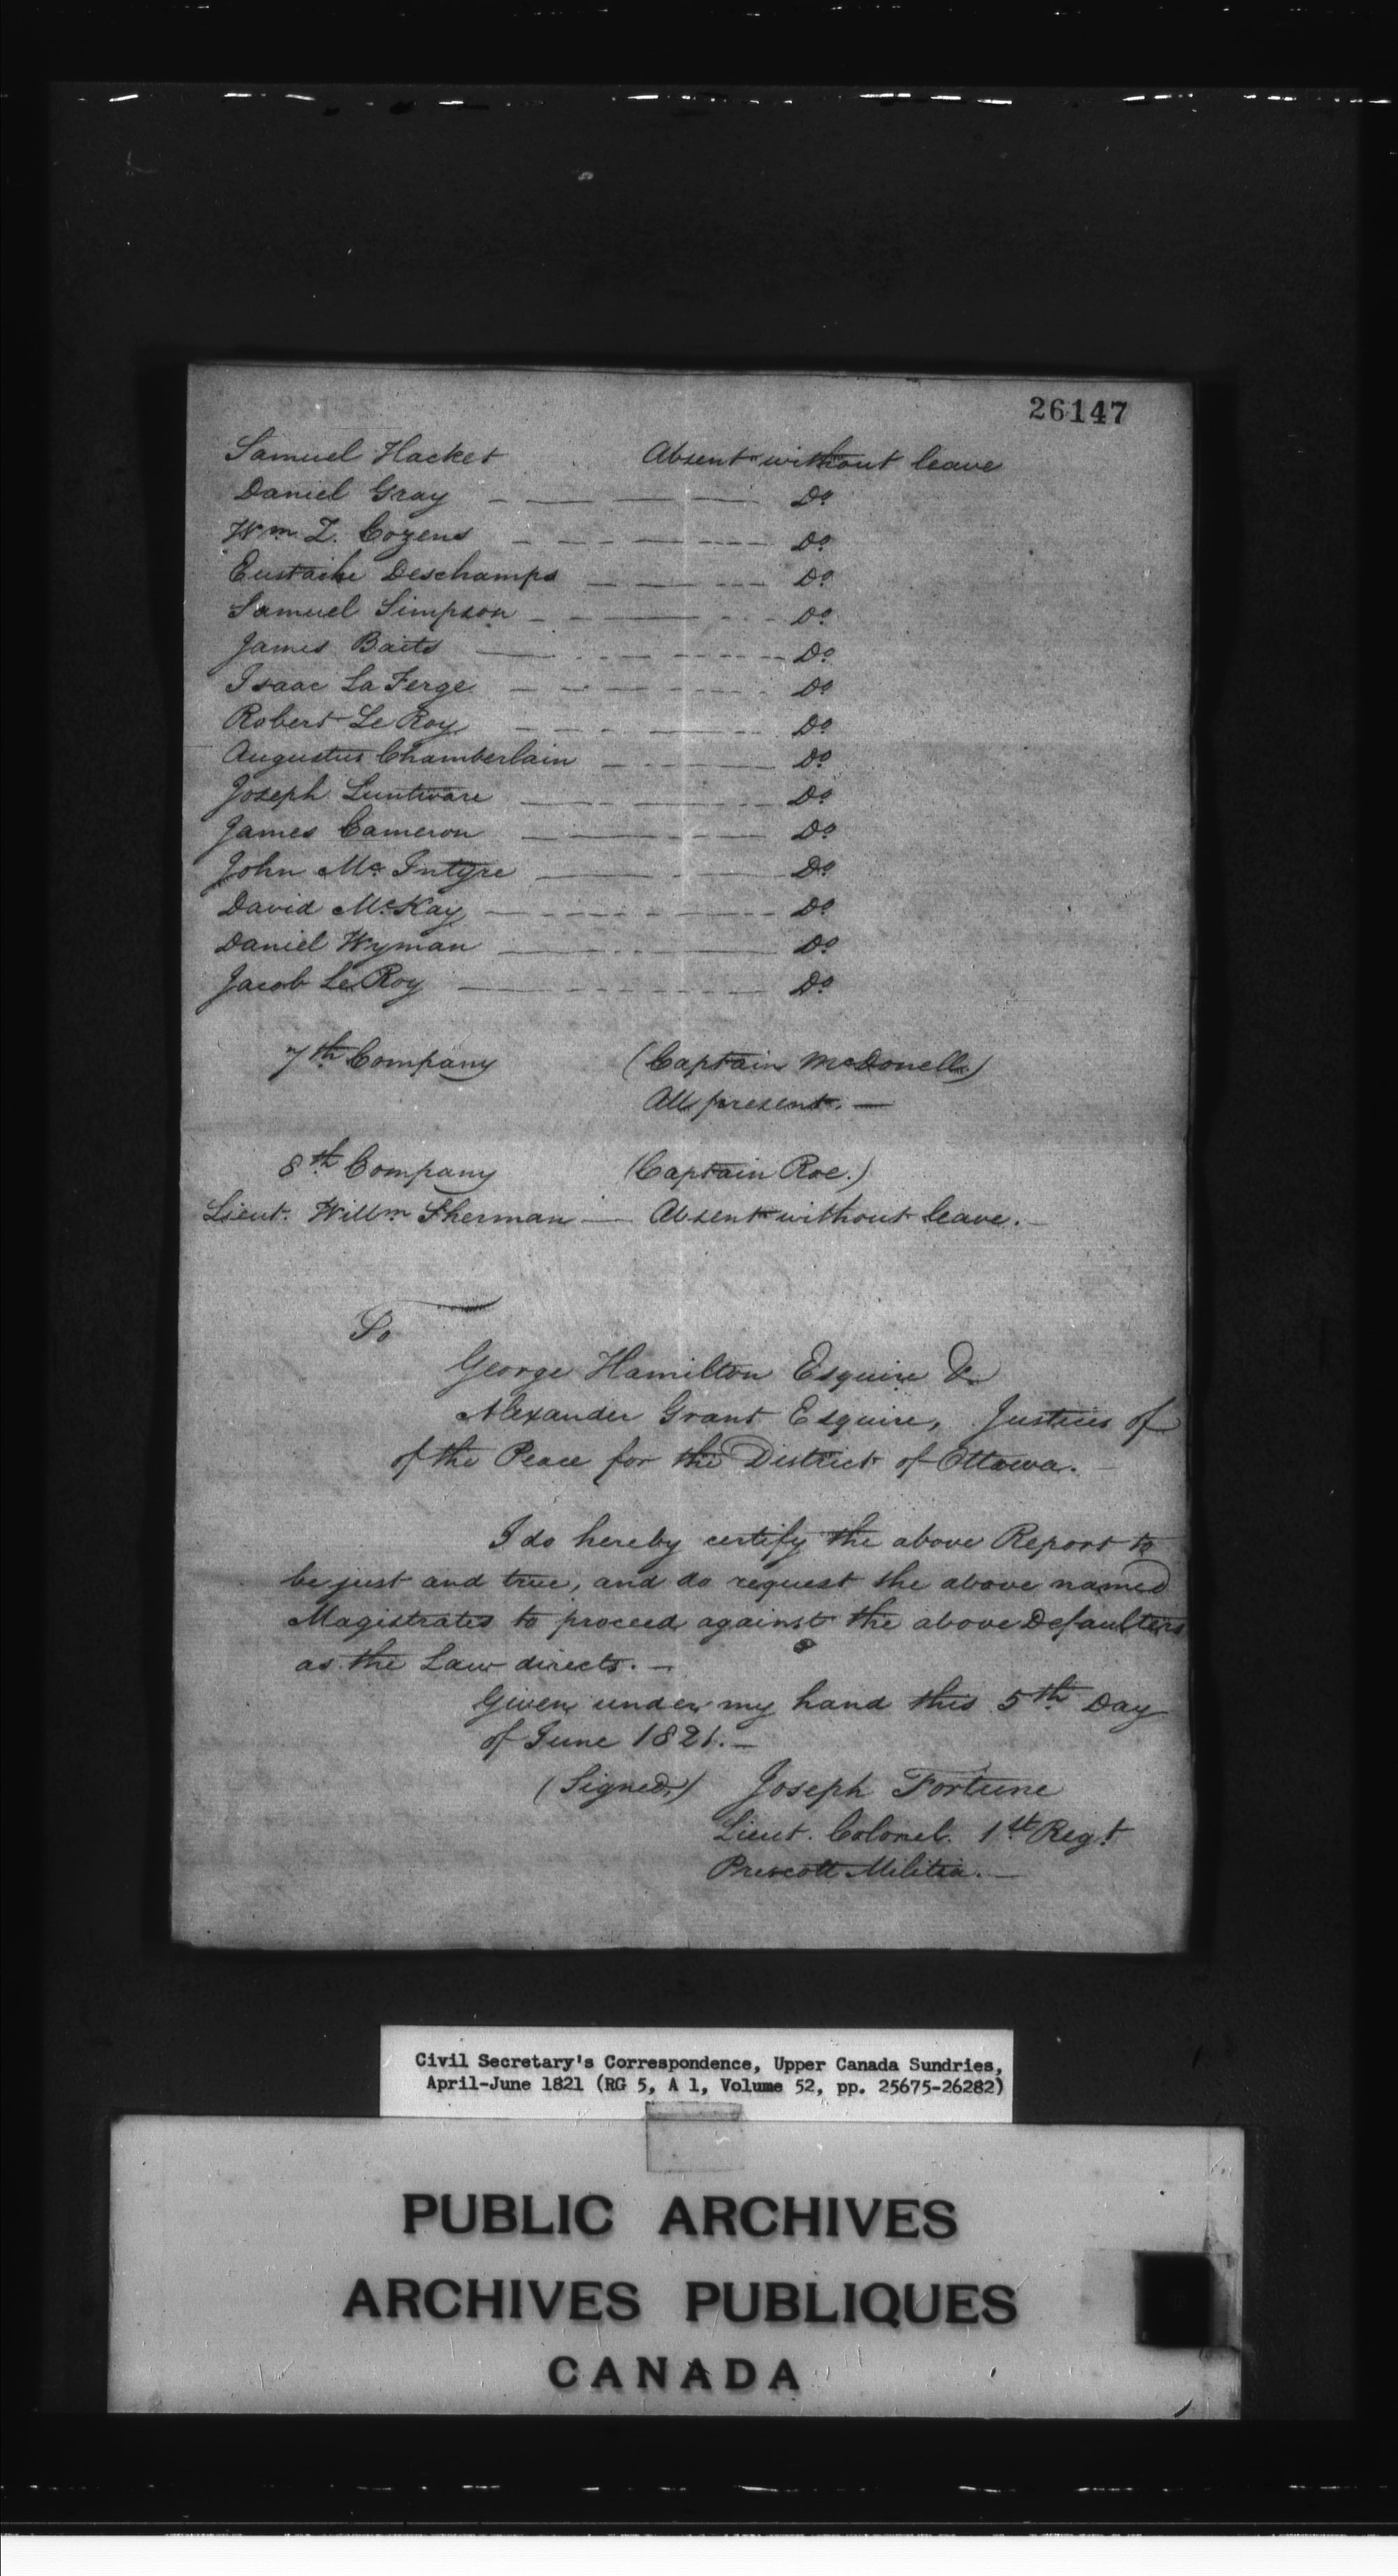 26147
Samuel Hacket Absent without leave
Daniel Gray Do
Wm. Z. Cozens Do
Eustache Deschamps Do
Samuel Simpson Do
James Baits Do
Isaac La Ferge Do
Robert Le Roy Do
Augustus Chamberlain Do
Joseph Luntware Do
James Cameron Do
John Mc Intyre Do
David McKay Do
Daniel Wyman Do
Jacob Le Roy Do
7th Company (Captain McDonell)
All present. —
8th Company (Captain Roe.)
Lieut. Willm Sherman — Absent without leave. —
To
George Hamilton Esquire &
Alexander Grant Esquire, Justices of
of the Peace for the District of Ottawa. —
I do hereby certify the above Report to
be just and true, and do request the above named
Magistrates to proceed against the above Defaulters
as the Law directs. —
Given under my hand this 5th Day
of June 1821. —
(Signed,) Joseph Fortune
Lieut. Colonel. 1st Regt
Prescott Militia. —
Civil Secretary's Correspondence, Upper Canada Sundries,
April-June 1821 (RG 5, A 1, Volume 52, pp. 25675-26282)
PUBLIC ARCHIVES
ARCHIVES PUBLIQUES
CANADA